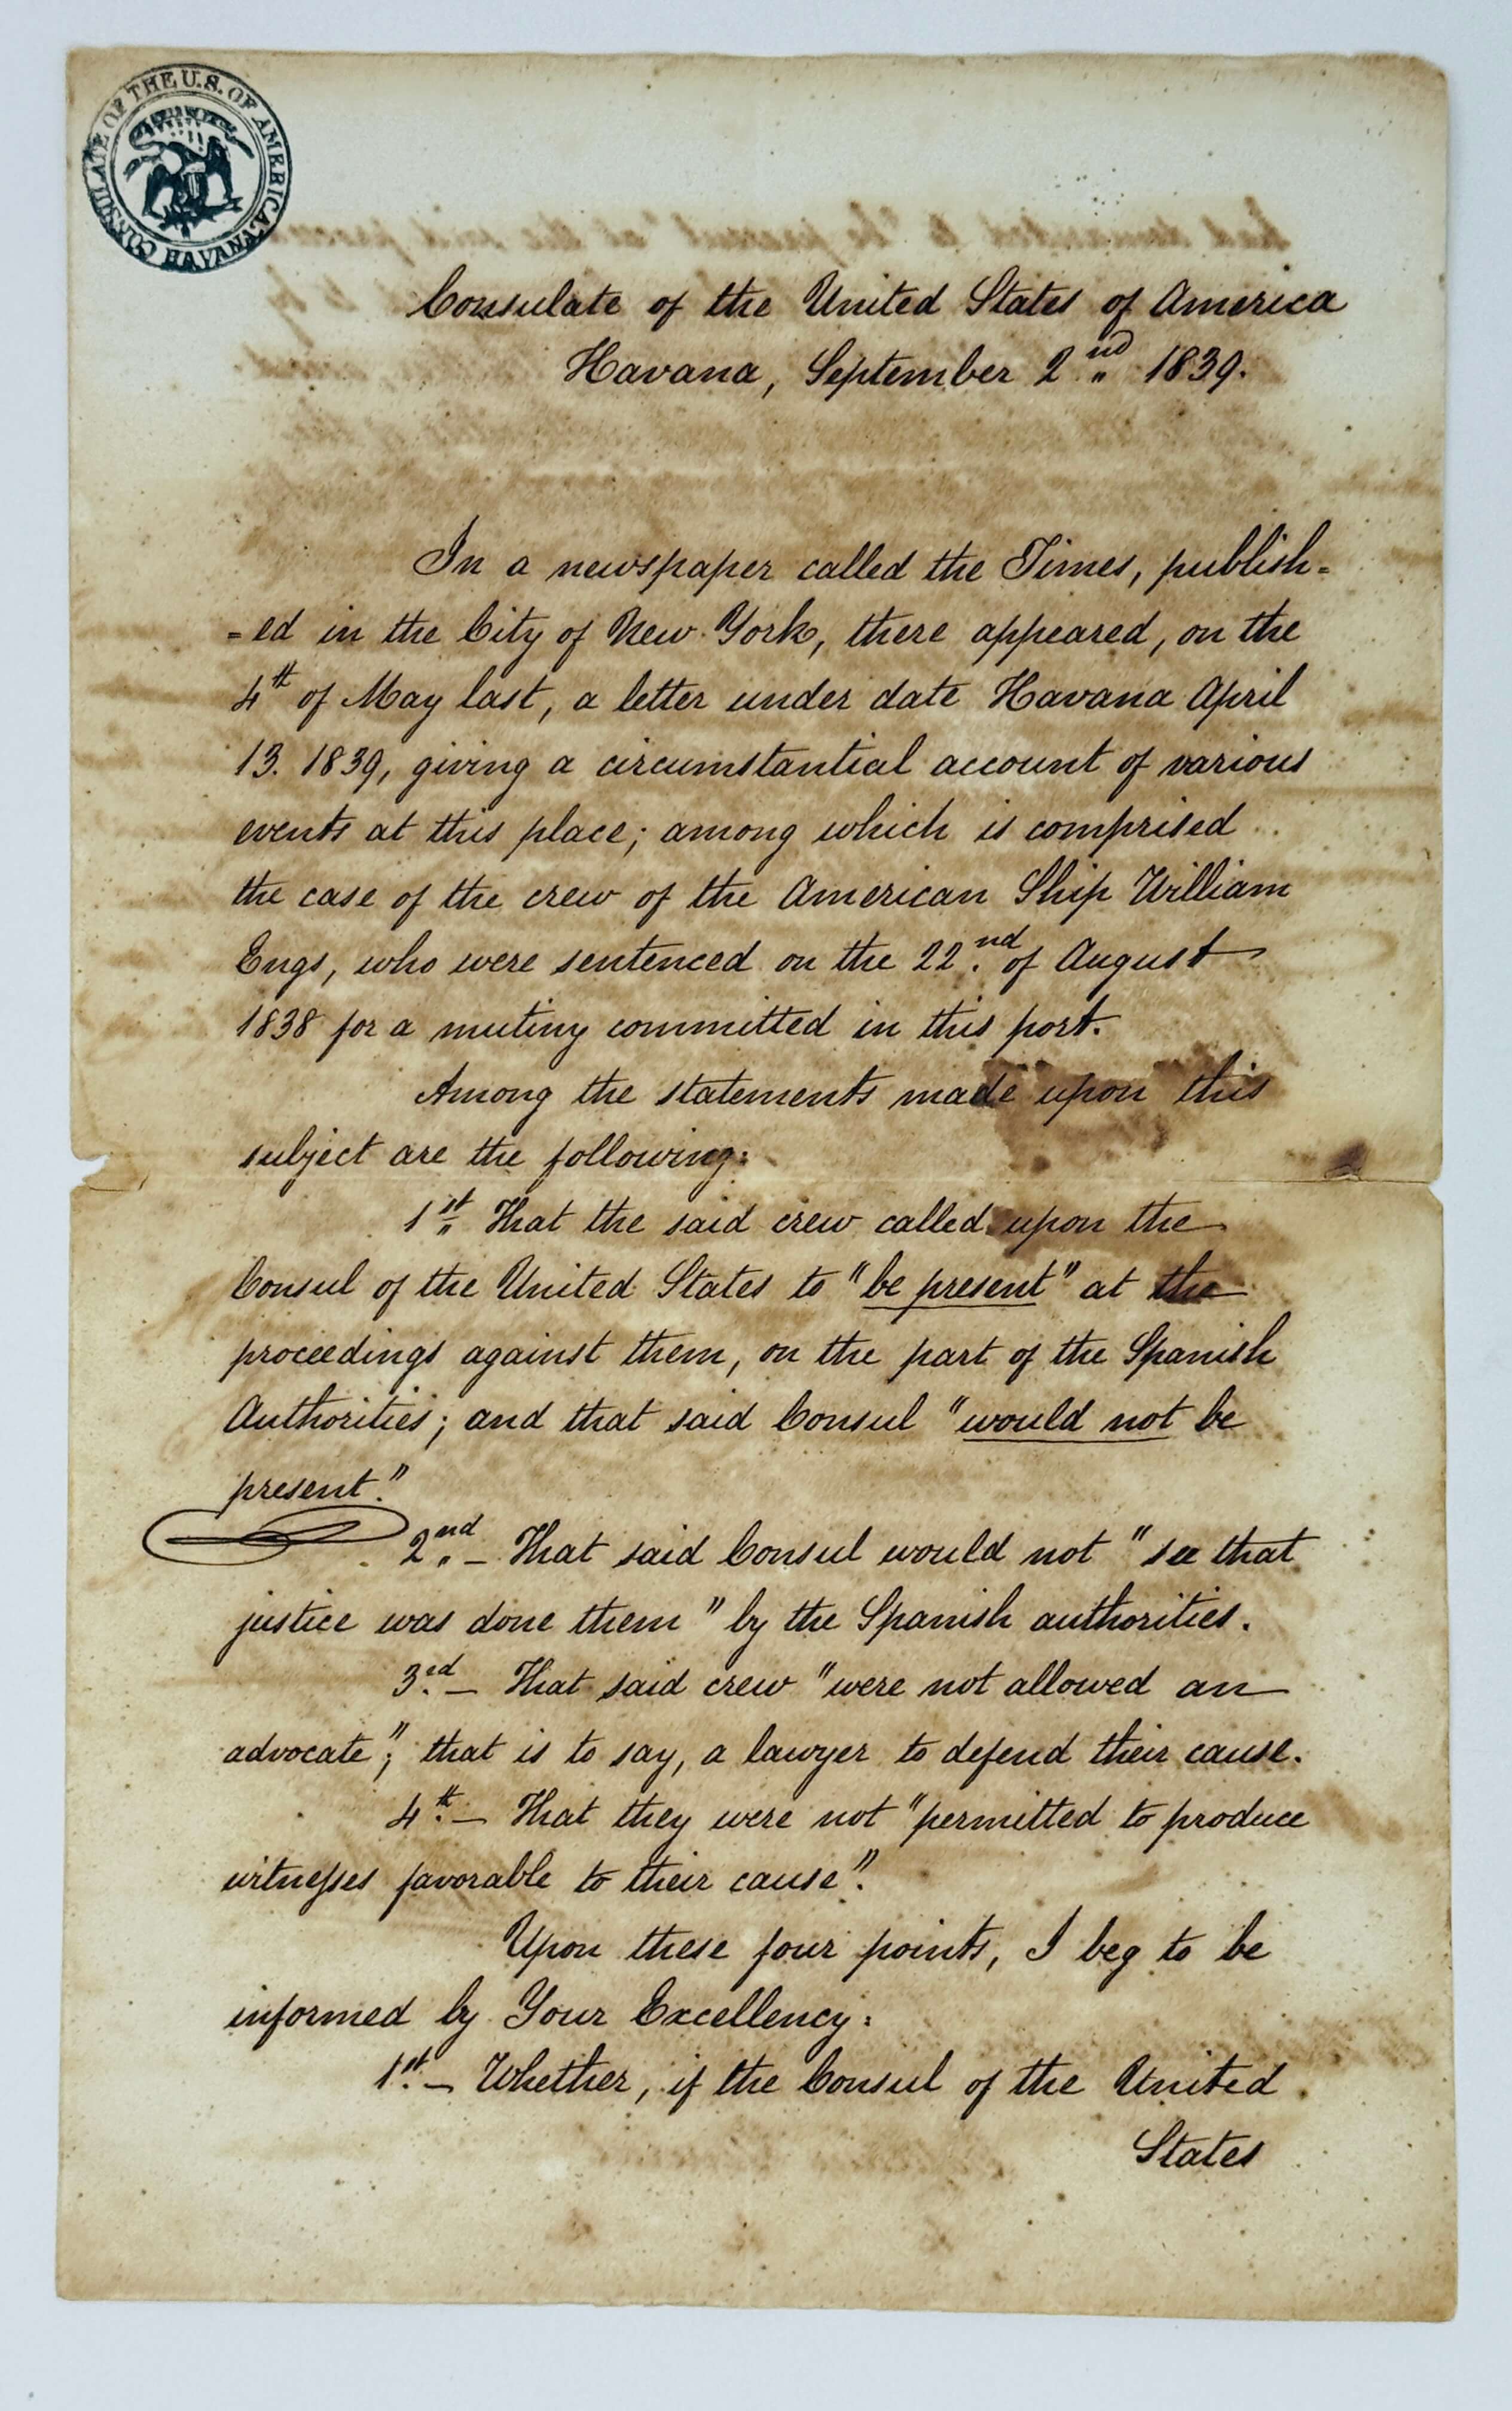 CONSULATE OF THE U.S. OF AMERICA HAVANA
Consulate of the United States of America
Havana, September 2nd 1839.
In a newspaper called the Times, publish=
=ed in the City of New York, there appeared, on the
4th of May last, a letter under date Havana April
13. 1839, giving a circumstantial account of various
events at this place; among which is comprised
the case of the crew of the American Ship William
Engs, who were sentenced on the 22nd of August
1838 for a mutiny committed in this port.
Among the statements made upon this
subject are the following:
1st That the said crew called upon the
Consul of the United States to "be present" at the
proceedings against them, on the part of the Spanish
Authorities; and that said Consul "would not be
present."
2nd – That said Consul would not "see that
justice was done them" by the Spanish authorities.
3rd – That said crew "were not allowed an
advocate"; that is to say, a lawyer to defend their cause.
4th – That they were not "permitted to produce
witnesses favorable to their cause".
Upon these four points, I beg to be
informed by Your Excellency:
1st – Whether, if the Consul of the United
States